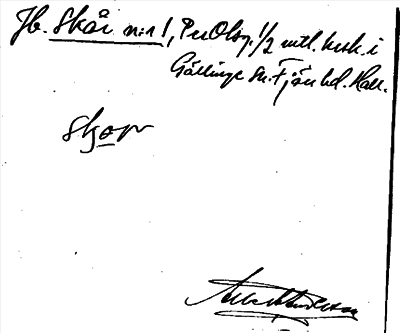 Jb. Skår n:r 1, Per Olsg. 1/2 mtl. krsk. i
Gällinge Sn. Fjäre hd. Hall.
skor